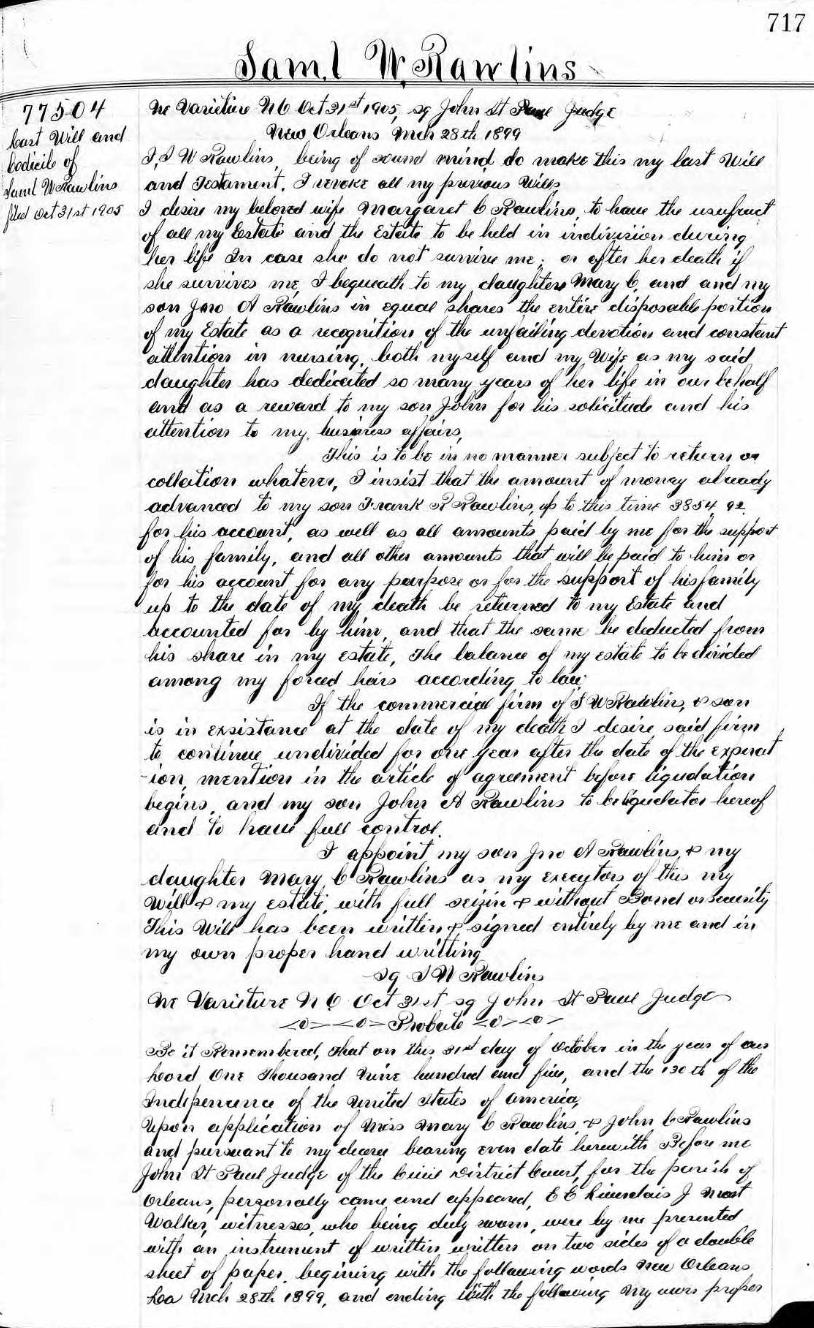 717
Saml W. Rawlins
77504
Last Will and
Codicile of
Saml W Rawlins
filed Oct 31st 1905
Ne Varieture N O Oct 31st 1905, sg John St Paul Judge
New Orleans Mch 28th 1899
I, S W Rawlins, being of sound mind, do make this my last Will
and Testament, I revoke all my previous Wills,
I desire my beloved wife Margaret C Rawlins, to have the usufruct
of all my Estate and the Estate to be held in indivision during
her life In case she do not survive me; or after her death if
she survives me, I bequeath to my daughters Mary C, and and my
son Jno A Rawlins in equal shares the entire disposable portion
of my Estate as a recognition of the unfailing devotion and constant
attention in nursing, both myself and my Wife as my said
daughter has dedicated so many years of her life in our behalf
and as a reward to my son John for his solicitude and his
attention to my business affairs,
This is to be in no manner subject to return or
collation whatever, I insist that the amount of money already
advanced to my son Frank R Rawlins, up to this time 3854 92
for his account, as well as all amounts paid by me for the support
of his family, and all other amounts that will be paid to him or
for his account for any purpose or for the support of his family
up to the date of my death be returned to my Estate and
accounted for by him, and that the same be deducted from
his share in my estate, The balance of my estate to be divided
among my forced heirs according to law
If the commercial firm of S W Rawlins, & son
is in exsistance at the date of my death I desire said firm
to continue undivided for one year after the date of the expirat
-ion, mention in the article of agreement before liquidation
begins, and my son John A Rawlins to be liquidator hereof
and to have full control.
I appoint my son Jno A Rawlins, & my
daughter Mary C Rawlins as my executors of this my
Will & my estate, with full seizin & without Bond or security
This Will has been written & signed entirely by me and in
my own proper hand writting
sg S W Rawlins
Ne Varieture N O Oct 31st sg John St Paul Judge
Probate
Be it Remembered, That on this 31st day of October in the year of our
Lord One Thousand Nine hundred and five, and the 130th of the
Independence of the United States of america,
Upon application of Miss Mary C Rawlins, & John C Rawlins
and pursuant to my decree bearing even date herewith Before me
John St Paul Judge of the Civil District Court, for the parish of
Orleans, personally came and appeared, E C J
Walker, witnesses, who being duly sworn, were by me presented
with an instrument of writtin written on two sides of a double
sheet of paper, begining with the following words New Orleans
La Mch 28th 1899, and ending with the following My own proper